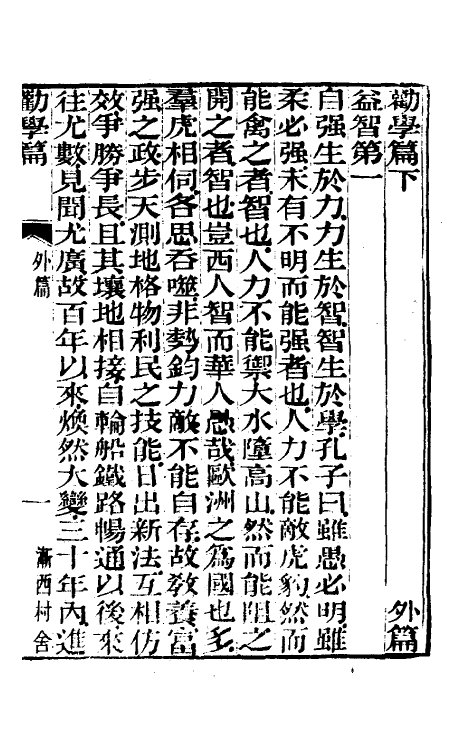 勸學篇下　外篇
益智第一
自强生於力力生於智智生於學孔子曰雖愚必明雖
柔必强未有不明而能强者也人力不能敵虎豹然而
能禽之者智也人力不能禦大水墮高山然而能阻之
開之者智也豈西人智而華人愚哉歐洲之爲國也多
羣虎相伺各思吞噬非勢鈞力敵不能自存故敎養富
强之政步天測地格物利民之技能日出新法互相仿
效爭勝爭長且其壤地相接自輪船鐵路暢通以後來
往尤數見聞尤廣故百年以來煥然大變三十年內進
勸學篇　外篇　一　漸西村舍